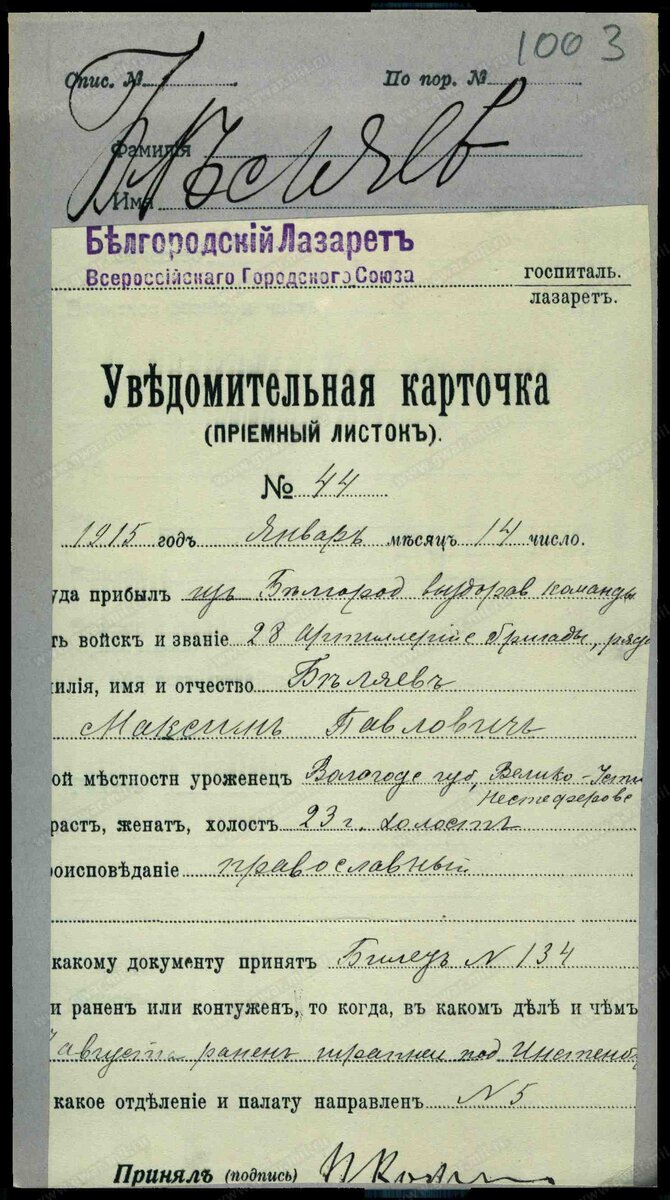 1003
Спис. № По пор. №
Фамилія
Имя
Бѣлгородскій Лазаретъ
Всероссійскаго Городского Союза
госпиталь.
лазаретъ.
Увѣдомительная карточка
(ПРІЕМНЫЙ ЛИСТОКЪ).
№ 44
1915 годъ Январь мѣсяцъ 14 число.
уда прибылъ изъ Бѣлгород выздоров команды
ть войскъ и званіе 28 Артиллерійс бригады, ряд
илія, имя и отчество Бѣляевъ
Максимъ Павловичъ
ой мѣстности уроженецъ Вологодс губ, Велико-Усти
Нестеферовс
растъ, женатъ, холостъ 23 г. холостъ
роисповѣданіе православный
какому документу принятъ Билетъ N 134
и раненъ или контуженъ, то когда, въ какомъ дѣлѣ и чѣмъ
августа раненъ под
какое отдѣленіе и палату направленъ N 5
Принялъ (подпись)